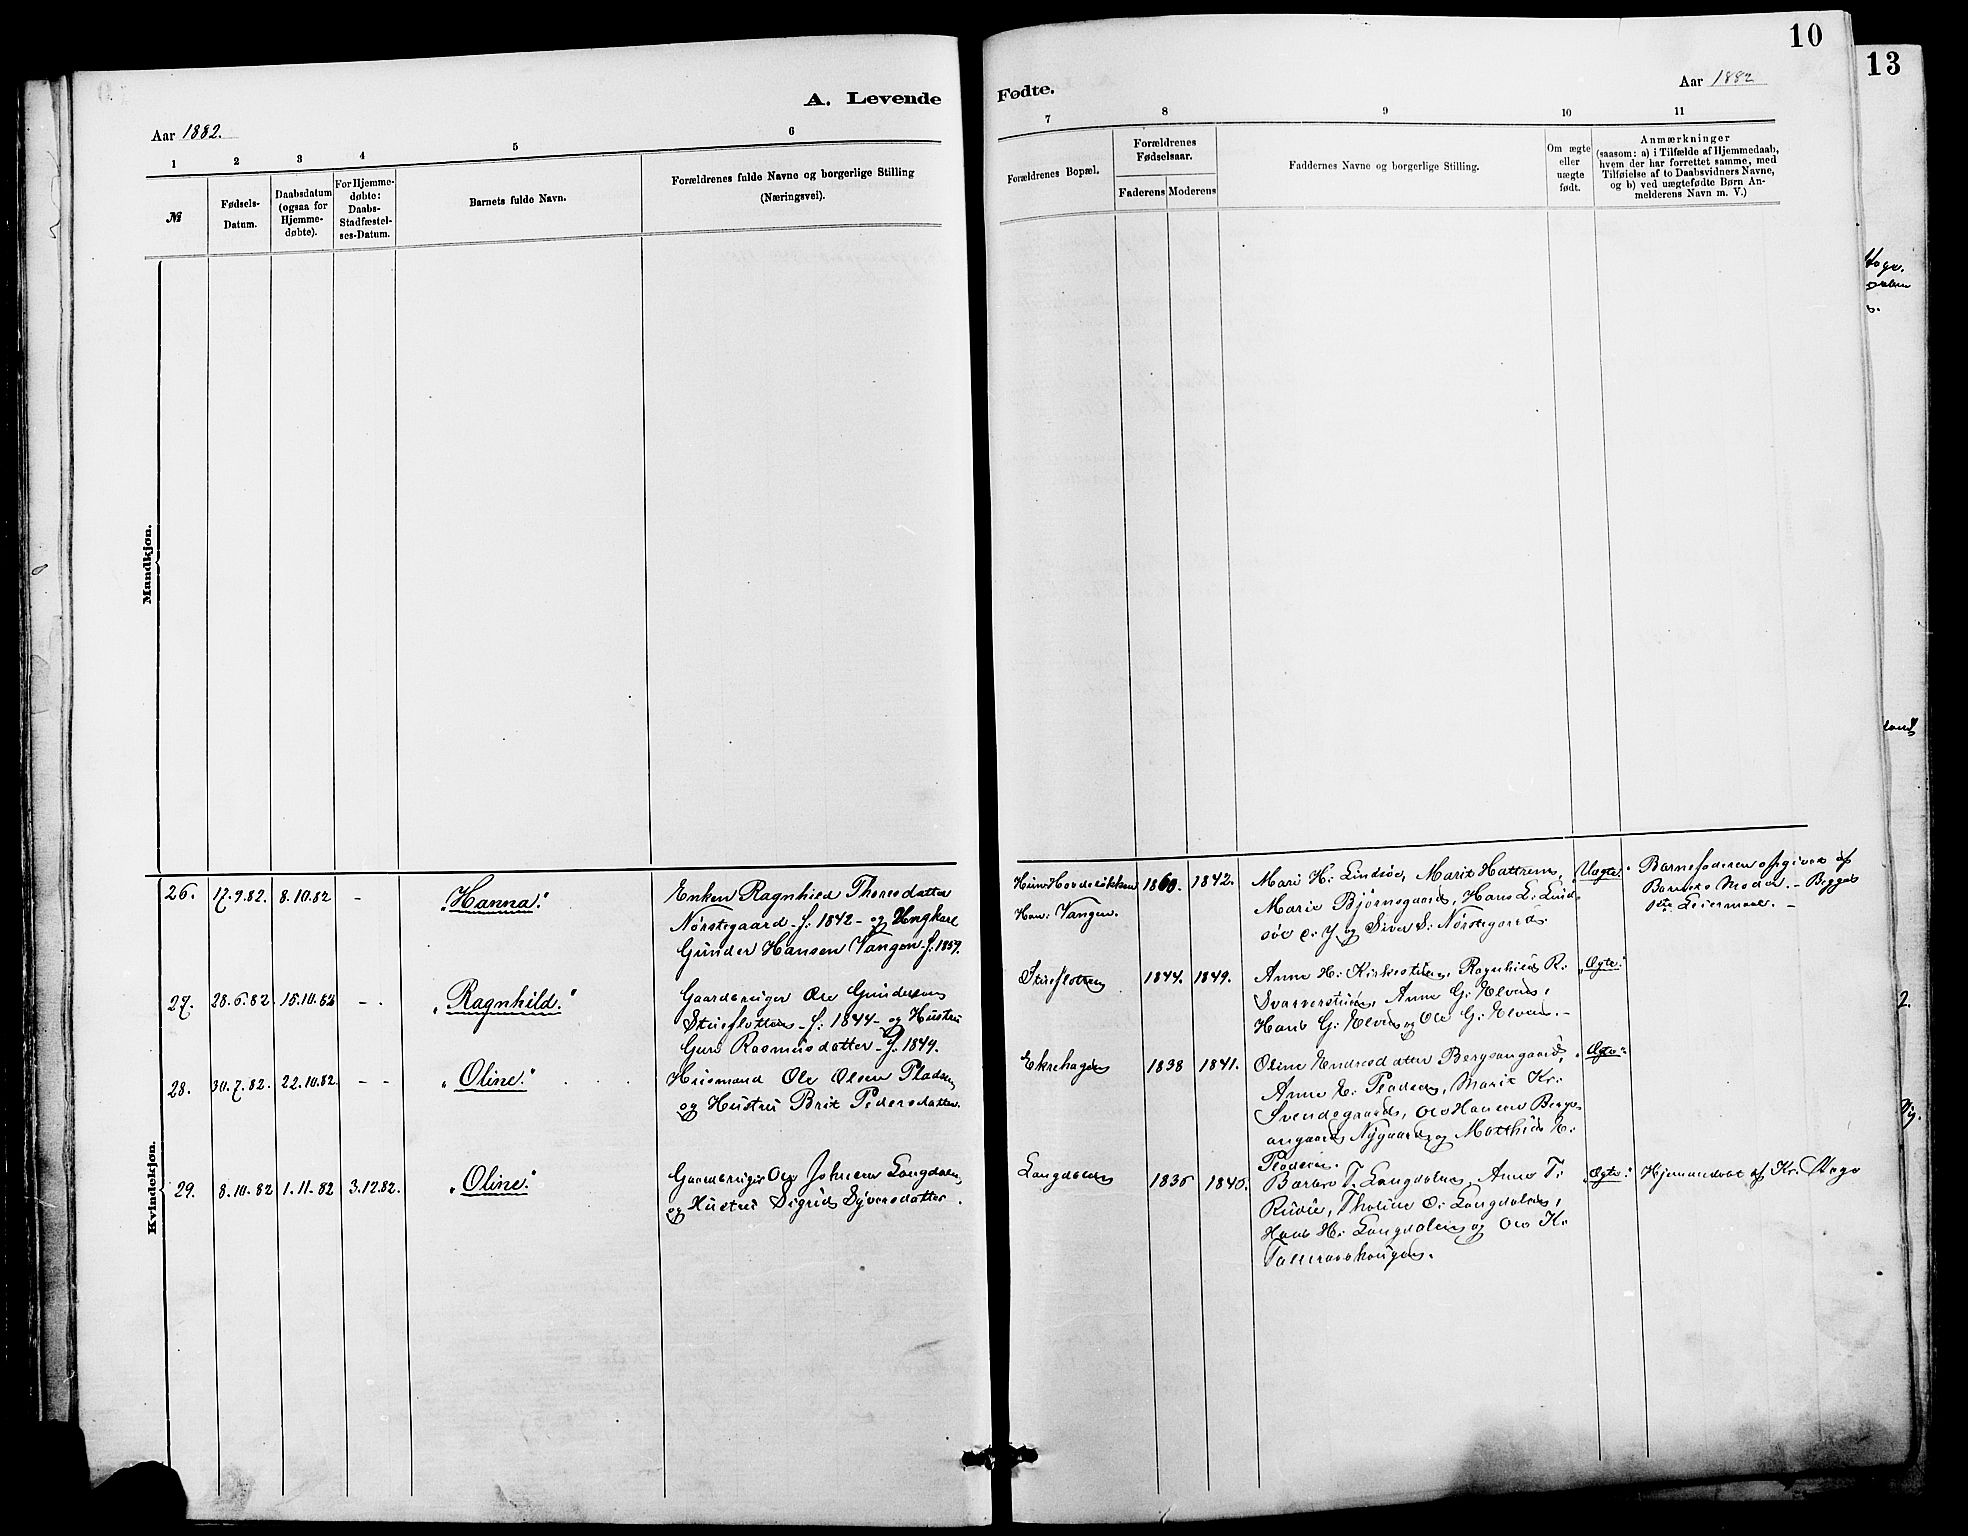 10
13
A. Levende
Fødte.
Aar 1882.
Aar 1882
1 2 3 4 5 6
7 8 9 10 11
№
Fødsels-
Datum.
Daabsdatum
(ogsaa for
Hjemme-
døbte).
For Hjemme-
døbte:
Daabs-
Stadfæstel-
ses-Datum.
Barnets fulde Navn.
Forældrenes fulde Navne og borgerlige Stilling
(Næringsvei).
Forældrenes Bopæl.
Forældrenes
Fødselsaar.
Faderens Moderens
Faddernes Navne og borgerlige Stilling.
Om ægte
eller
uægte
født.
Anmærkninger
(saasom: a) i Tilfælde af Hjemmedaab,
hvem der har forrettet samme, med
Tilføielse af to Daabsvidners Navne,
og b) ved uægtefødte Børn An-
melderens Navn m. V.)
Mandkjøn.
Kvindekjøn.
26. 17.9.82. 8.10.82 - "Hanna."
Enken Ragnhild Thoresdatter
Nørstegaard f: 1842 - og Ungkarl
Gunder Hansen Vangen f. 1859.
1860. 1842.
Han: Vangen.
Mari H: Lindsøe, Marit Hattrem,
Marie Bjørnsgaard, Hans L: Lind-
søe e: y og Siver S: Nørstegaard.
Uægte.
Barnefaderen opgivet af
Barnets Moder. - Begges
1ste Leiermaal. -
27. 28.6.82 15.10.82 - . "Ragnhild."
Gaardbruger Ole Gundersen
Stueflotten f: 1844 - og Hustru
Guro Rasmusdatter f. 1849.
Stueflotten 1844. 1849.
Anne H: Kirkestuen, Ragnhild R:
Anne G: Elven,
Hans G: Elven og Ole G: Elven. -
"Ægte."
28. 30.7.82. 22.10.82. - - "Oline."
Husmand Ole Olsen Pladsen
og Hustru Brit Pedersdatter.
Ekrehagen 1838 1841.
Oline Endresdatter Bergsangaard,
Anne E: Pladsen, Marit Kr:
Svendsgaard, Ole Hansen Bergs-
angaard Nygaard og Matthias E:
Pladsen.
"Ægte."
29. 8.10.82 1.11.82 3.12.82. "Oline."
Gaardbruger Ole Johnsen Langdalen
og Hustru Sigrid Syversdatter.
Langdalen 1836 1840.
Barbro T. Langdalen, Anne T:
Thorine O: Langdalen,
Hans H: Langdalen og Ole K:
"Ægte."
Hjemmedøbt af Kr. Stage